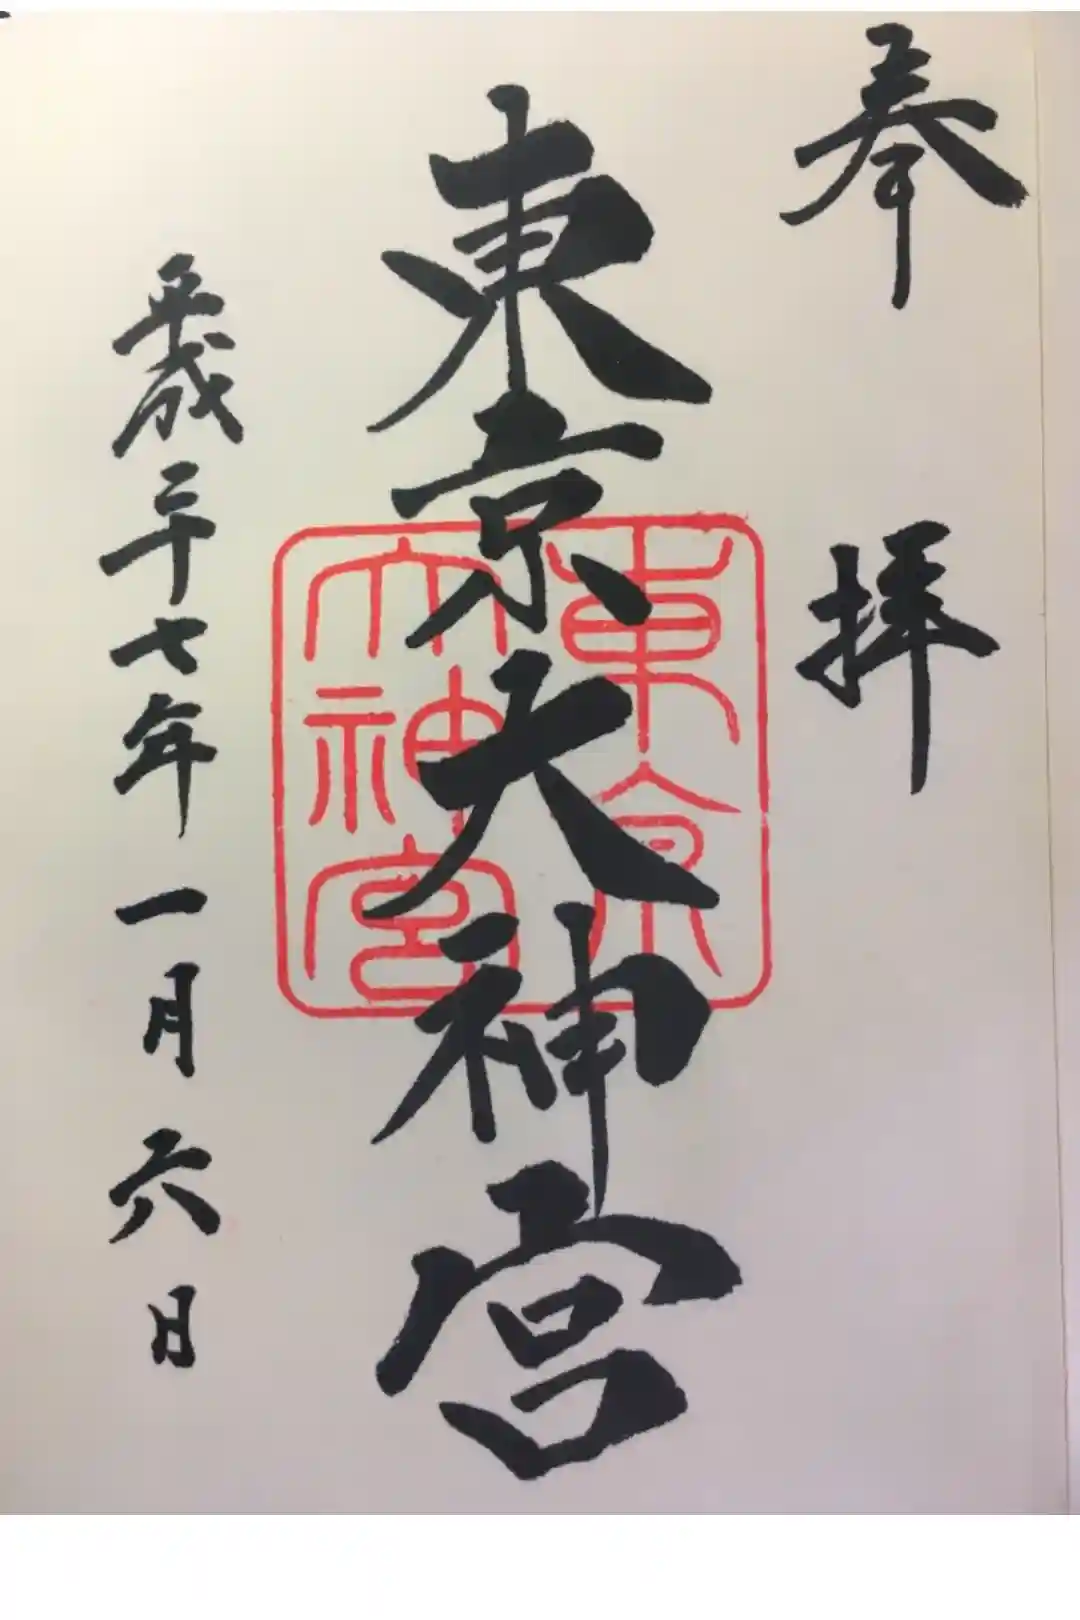 奉拝
東京大神宮
東京
大神宮
平成二十七年一月六日